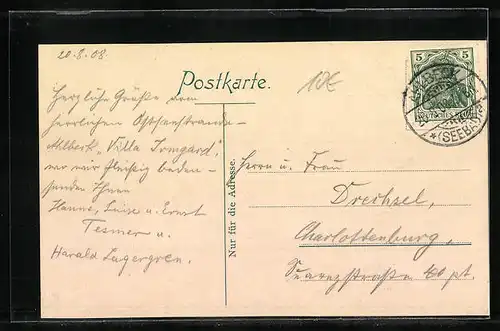 20.8.08.
Postkarte.
10€
5 5
AHLBECK
(SEEBAD)
Herzliche Grüße vom
herrlichen Ostseestrande
Ahlbeck "Villa Irmgard",
wo wir fleißig baden
senden Ihnen
Hanne, Luise u. Ernst
Tesmer u.
Harald Lagergren.
Nur für die Adresse.
Herrn u. Frau
Drechsel,
Charlottenburg,
Suarezstraße pt.